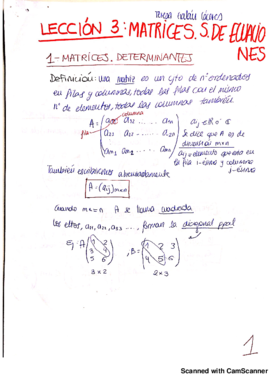 LECCIÓN 3: MATRICES. S. DE ECUACIONES
1.- MATRICES. DETERMINANTES
Definición: Una matriz es un cjto de nº ordenados
en filas y columnas, todas las filas con el mismo
nº de elementos, todas las columnas también
columna
fila
A = (a11 a12 ..... a1n
a21 a22 ..... a2n
am1 am2 ..... amn)
aij ∈ R ó C
Se dice que A es de
dimensión m×n
aij = elemento que está en
la fila i-ésima y columna
j-ésima
También escribiremos abreviadamente
A = (aij)m×n
Cuando m = n A se llama cuadrada
Los eltos, a11, a22, a33 ... , forman la diagonal ppal
Ej: A (1 2
3 4
5 6)
3 × 2
B = (1 2 3
4 5 6)
2 × 3
1
Scanned with CamScanner